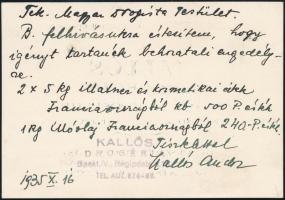 Tek. Magyar Drogista Testület.
B. felhívásukra értesítem, hogy
igényt tartanék behozatali engedély-
re.
2 x 5 kg illatszer és kozmetikai cikk
Franciaországból kb 500 P. érték
1 kg Franciaországból 240 P. érték
Tisztelettel
Kallós Andor
1935 X. 16
KALLÓS
DROGÉRIA
Bpest, V.,
TEL. AUT.